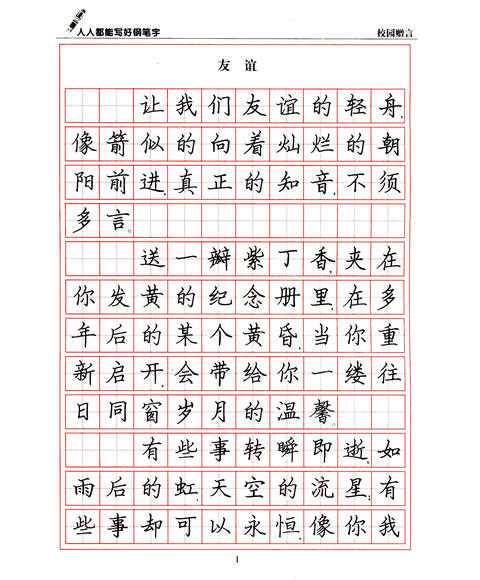 人人都能写好钢笔字
校园赠言
友谊
让我们友谊的轻舟,
像箭似的向着灿烂的朝
阳前进,真正的知音,不须
多言。
送一瓣紫丁香,夹在
你发黄的纪念册里,在多
年后的某个黄昏,当你重
新启开,会带给你一缕往
日同窗岁月的温馨。
有些事转瞬即逝,如
雨后的虹、天空的流星;有
些事却可以永恒,像你我
1